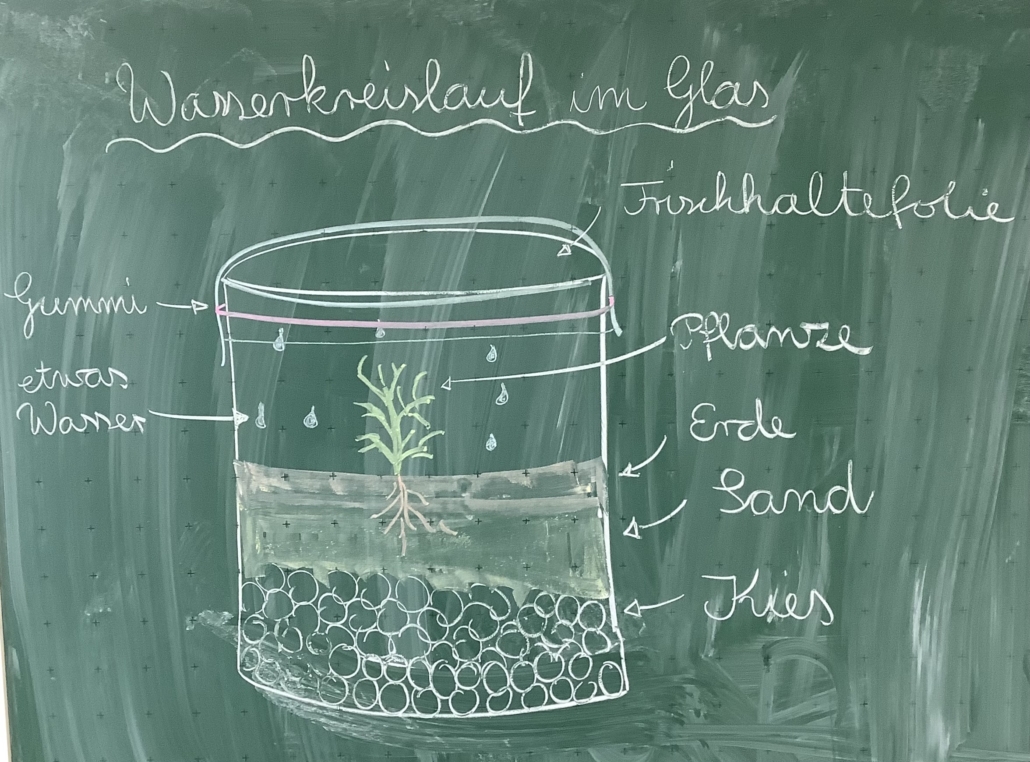 Wasserkreislauf im Glas
Frischhaltefolie
Gummi
Pflanze
etwas
Wasser
Erde
Sand
Kies